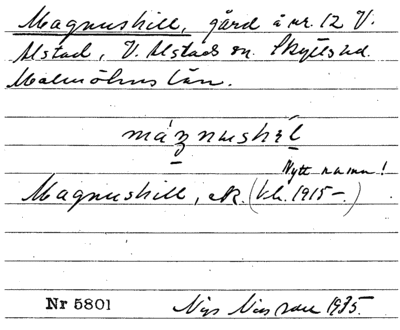 Magnushill, gård å nr. 12 V.
Alstad, V. Alstads sn. Skytts hd.
Malmöhus län.
máznushìl
Nytt namn!
Magnushill, ek. (kh. 1915-.)
Nr 5801 Nils Nilsson 1935.